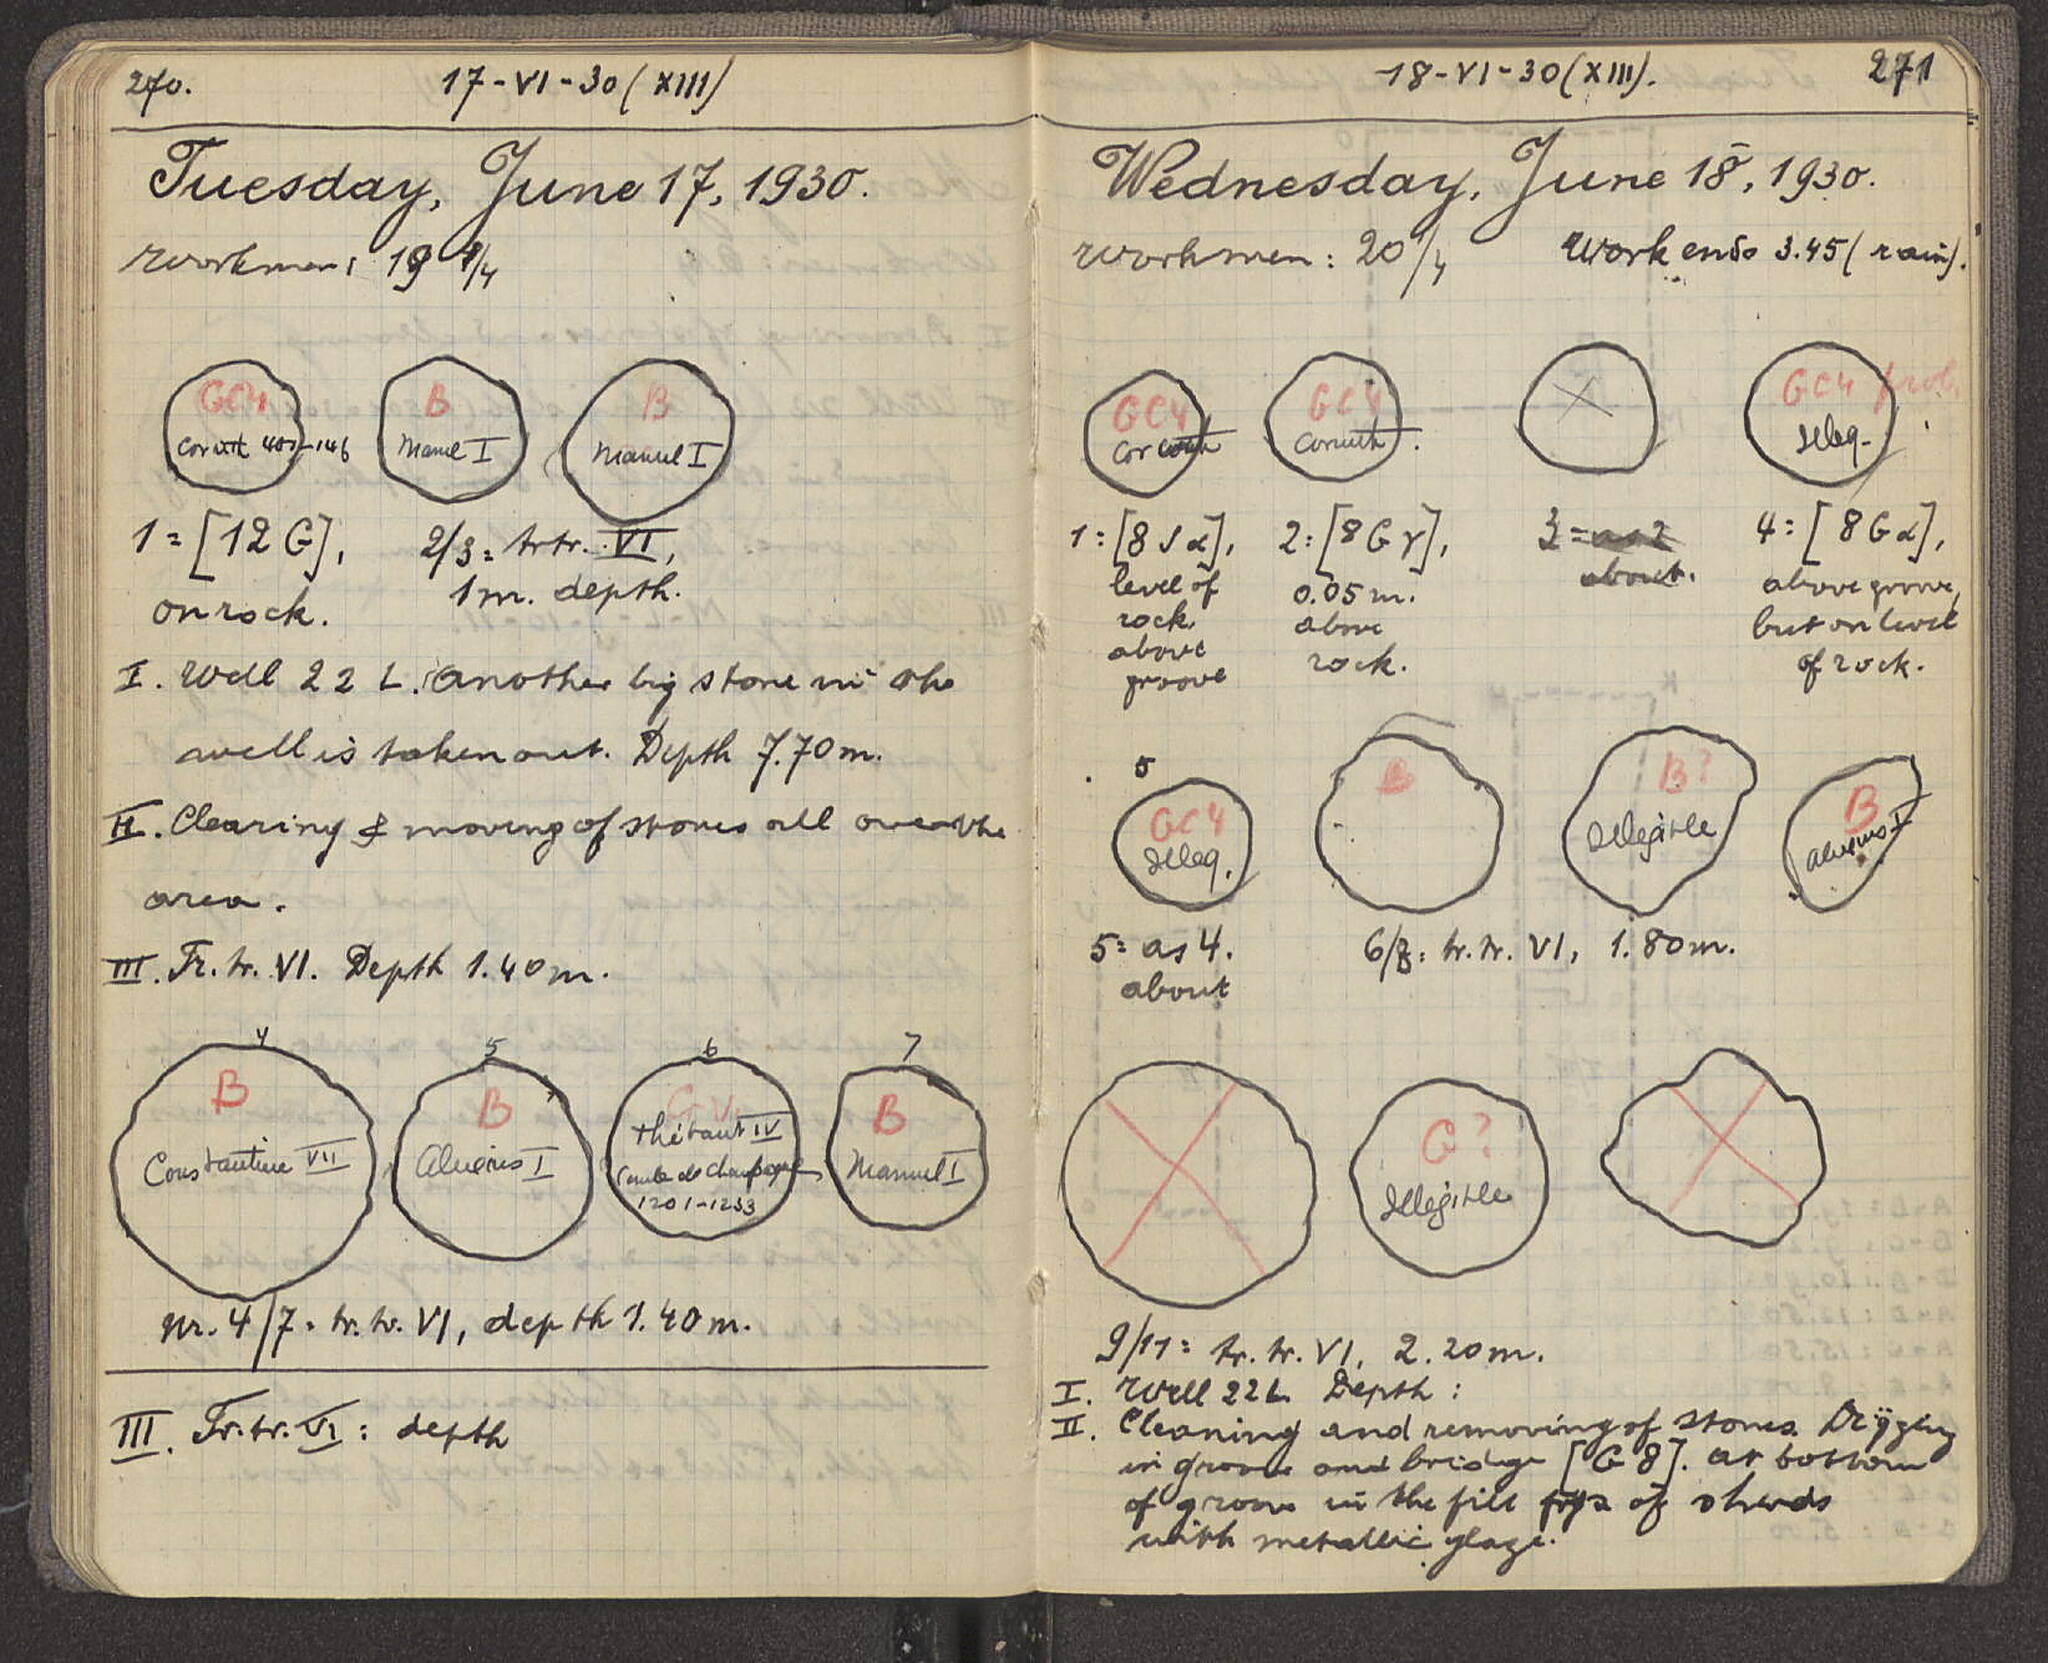 270.
17-VI-30 (XIII)
Tuesday, June 17, 1930.
Workmen: 19
GC4
Corinth 400-146
B
Manuel I
B
Manuel I
1 = [12 G],
on rock.
2/3 = tr. tr. VI,
1 m. depth.
I. Well 22 L. Another big stone in the
well is taken out. Depth 7.70 m.
II. Clearing & moving of stones all over the
area.
III. Tr. tr. VI. Depth 1.40 m.
4
B
Constantine VII
5
B
Alexius I
6
Thibaut IV
Comte de Champagne
1201-1253
7
B
Manuel I
Nr. 4/7 = tr. tr. VI, depth 1.40 m.
III. Tr. tr. VI: depth
18-VI-30 (XIII).
271
Wednesday, June 18, 1930.
Workmen: 20
Work ends 3.45 (rain).
GC4
Corinth
GC4
Corinth.
GC4 prob.
Illeg.
1: [8 J α],
level of
rock
above
groove
2: [8 G γ],
0.05 m.
above
rock.
3 = as 2
about.
4: [8 G α],
above groove,
but on level
of rock.
5
GC4
Illeg.
B
B?
Illegible
B
Alexius I
5 = as 4.
about
6/8: tr. tr. VI, 1.80 m.
G?
Illegible
9/11 = tr. tr. VI, 2.20 m.
I. Well 22 L Depth:
II. Cleaning and removing of stones. Digging
in groove and bridge [G 8]. At bottom
of groove in the fill of sherds
with metallic glaze.